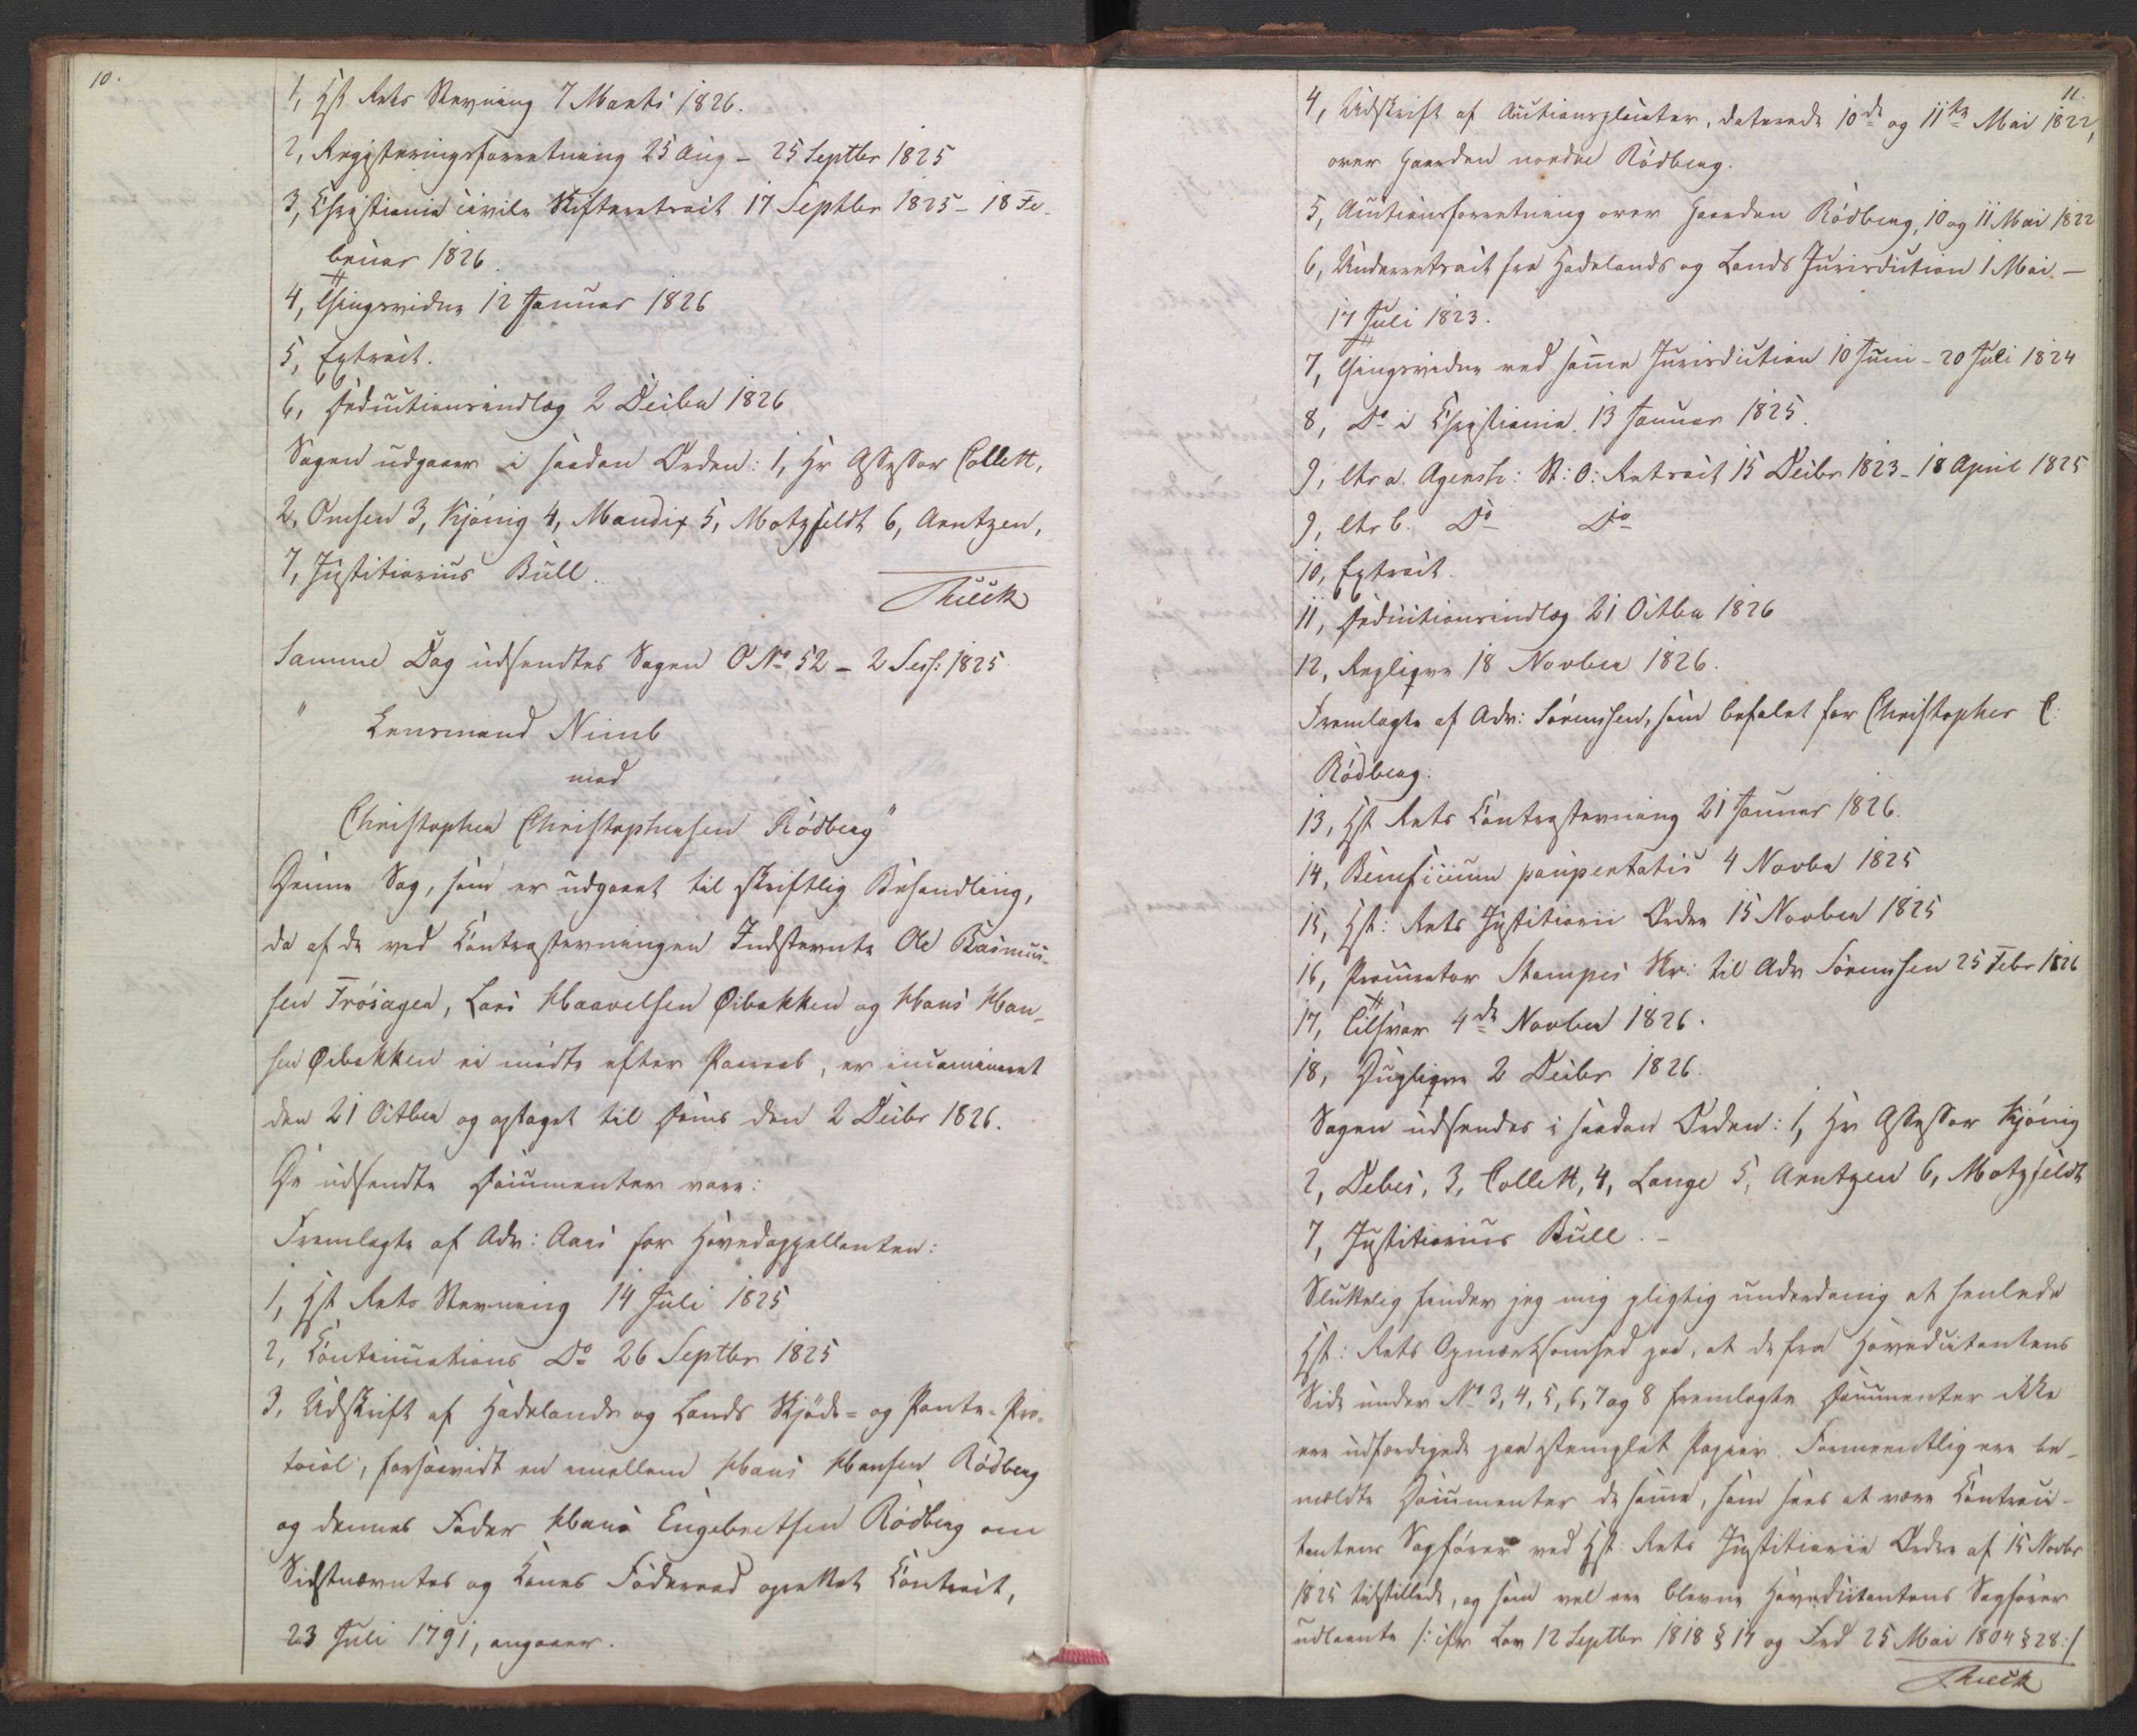 10.
1, Hst Rets Stevning 7 Marts 1826.
2, Registreringsforretning 25 Aug – 25 Septbr 1825
3, Christiania civile Skifteretsact 17 Septbr 1825 – 18 Fe-
bruar 1826.
4, Thingsvidne 12 Januar 1826
5, Extract.
6, Deductionsindlæg 2 Decbr 1826
Sagen udgaaer i saadan Orden: 1, Hr Assessor Collett,
2, Omsen 3, Kjönig 4, Mandix 5, Motzfeldt 6, Arntzen,
7, Justitiarius Bull.
Thieck
Samme Dag udsendtes Sagen O No 52 – 2 Sess: 1825
" Lensmand Nimb
mod
Christopher Christophersen Rödberg "
Denne Sag, som er udgaaet til skriftlig Behandling,
da af de ved Contrastevningen Indstevnte Ole Rasmus-
sen Frösagen, Lars Haavelsen Øibakken og Hans Han-
sen Øibakken ei mödte efter Paaraab, er incamineret
den 21 Octbr og optaget til Doms den 2 Decbr 1826.
De udsendte Documenter vare:
Fremlagte af Adv: Aars for Hovedappellanten:
1, Hst Rets Stevning 14 Juli 1825
2, Continuations Do 26 Septbr 1825
3, Udskrift af Hadelands og Lands Skjöde- og Pante-Pro-
tocol, forsaavidt en imellem Hans Hansen Rödberg
og dennes Fader Hans Engebretsen Rödberg om
Sidstnævntes og Kones Föderaad oprettet Contract,
23 Juli 1791, angaaer.
11.
4, Udskrift af Auctionsplacater, daterede 10de og 11te Mai 1822,
over Gaarden nordre Rödberg.
5, Auctionsforretning over Gaarden Rödberg, 10 og 11 Mai 1822
6, Underretsact fra Hadelands og Lands Jurisdiction 1 Mai –
17 Juli 1823.
7, Thingsvidne ved samme Jurisdiction 10 Juni – 20 Juli 1824
8, Do i Christiania 13 Januar 1825.
9, ltr a. Agersh: St: O: Retsact 15 Decbr 1823 – 18 April 1825
9, ltr b. Do Do
10, Extract.
11, Deductionsindlæg 21 Octbr 1826
12, Replique 18 Novbr 1826.
Fremlagte af Adv: Sörenssen, som befalet for Christopher C:
Rödberg:
13, Hst Rets Contrastevning 21 Januar 1826.
14, Beneficium paupertatis 4 Novbr 1825
15, Hst: Rets Justitiarii Ordre 15 Novber 1825
16, Procurator Stampes Skr: til Adv Sörenssen 25 Febr 1826
17, Tilsvar 4de Novber 1826.
18, Duplique 2 Decbr 1826.
Sagen udsendes i saadan Orden: 1, Hr Assessor Kjönig
2, Debes, 3, Collett, 4, Lange 5, Arntzen 6, Motzfeldt
7, Justitiarius Bull. –
Sluttelig finder jeg mig pligtig underdanig at henlede
Hst: Rets Opmærksomhed paa, at de fra Hovedcitantens
Side under No 3, 4, 5, 6, 7 og 8 fremlagte Documenter ikke
ere udfærdigede paa stemplet Papiir. Formeentlig ere be-
meldte Documenter de samme, som sees at være Contraci-
tantens Sagförer ved Hst: Rets Justitiarii Ordre af 15 Novbr
1825 tilstillede, og som vel ere blevne Hovedcitantens Sagförer
udlaante /: cfr Lov 12 Septbr 1818 § 17 og Frd 25 Mai 1804 § 28:/
Thieck